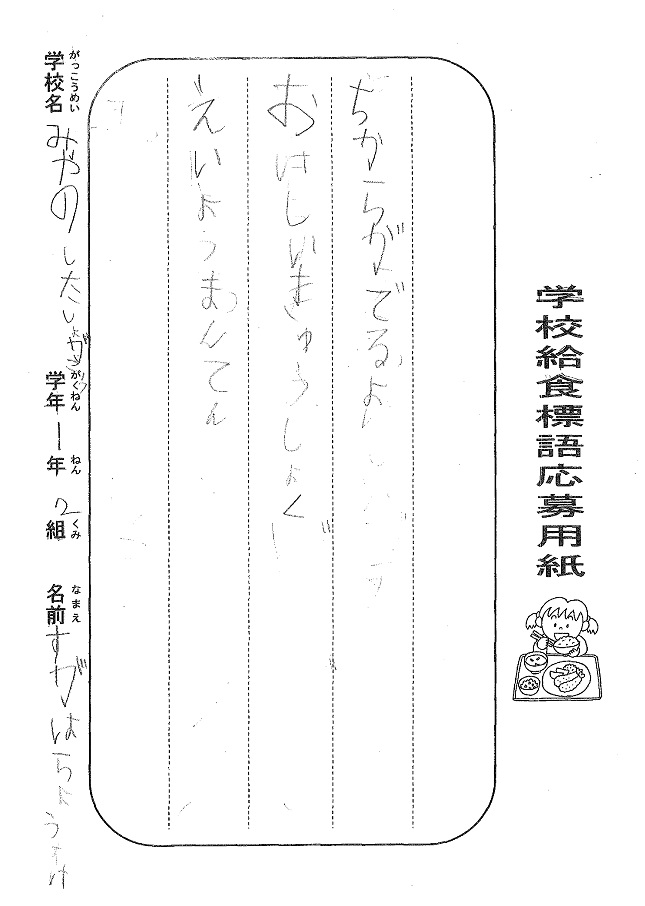 学校給食標語応募用紙
ちからがでるよ
おいしいきゅうしょく
えいようまんてん
がっこうめい
学校名 みやのしたしょ
がくねん ねん くみ
学年 1年 2組
なまえ
名前 すがはら